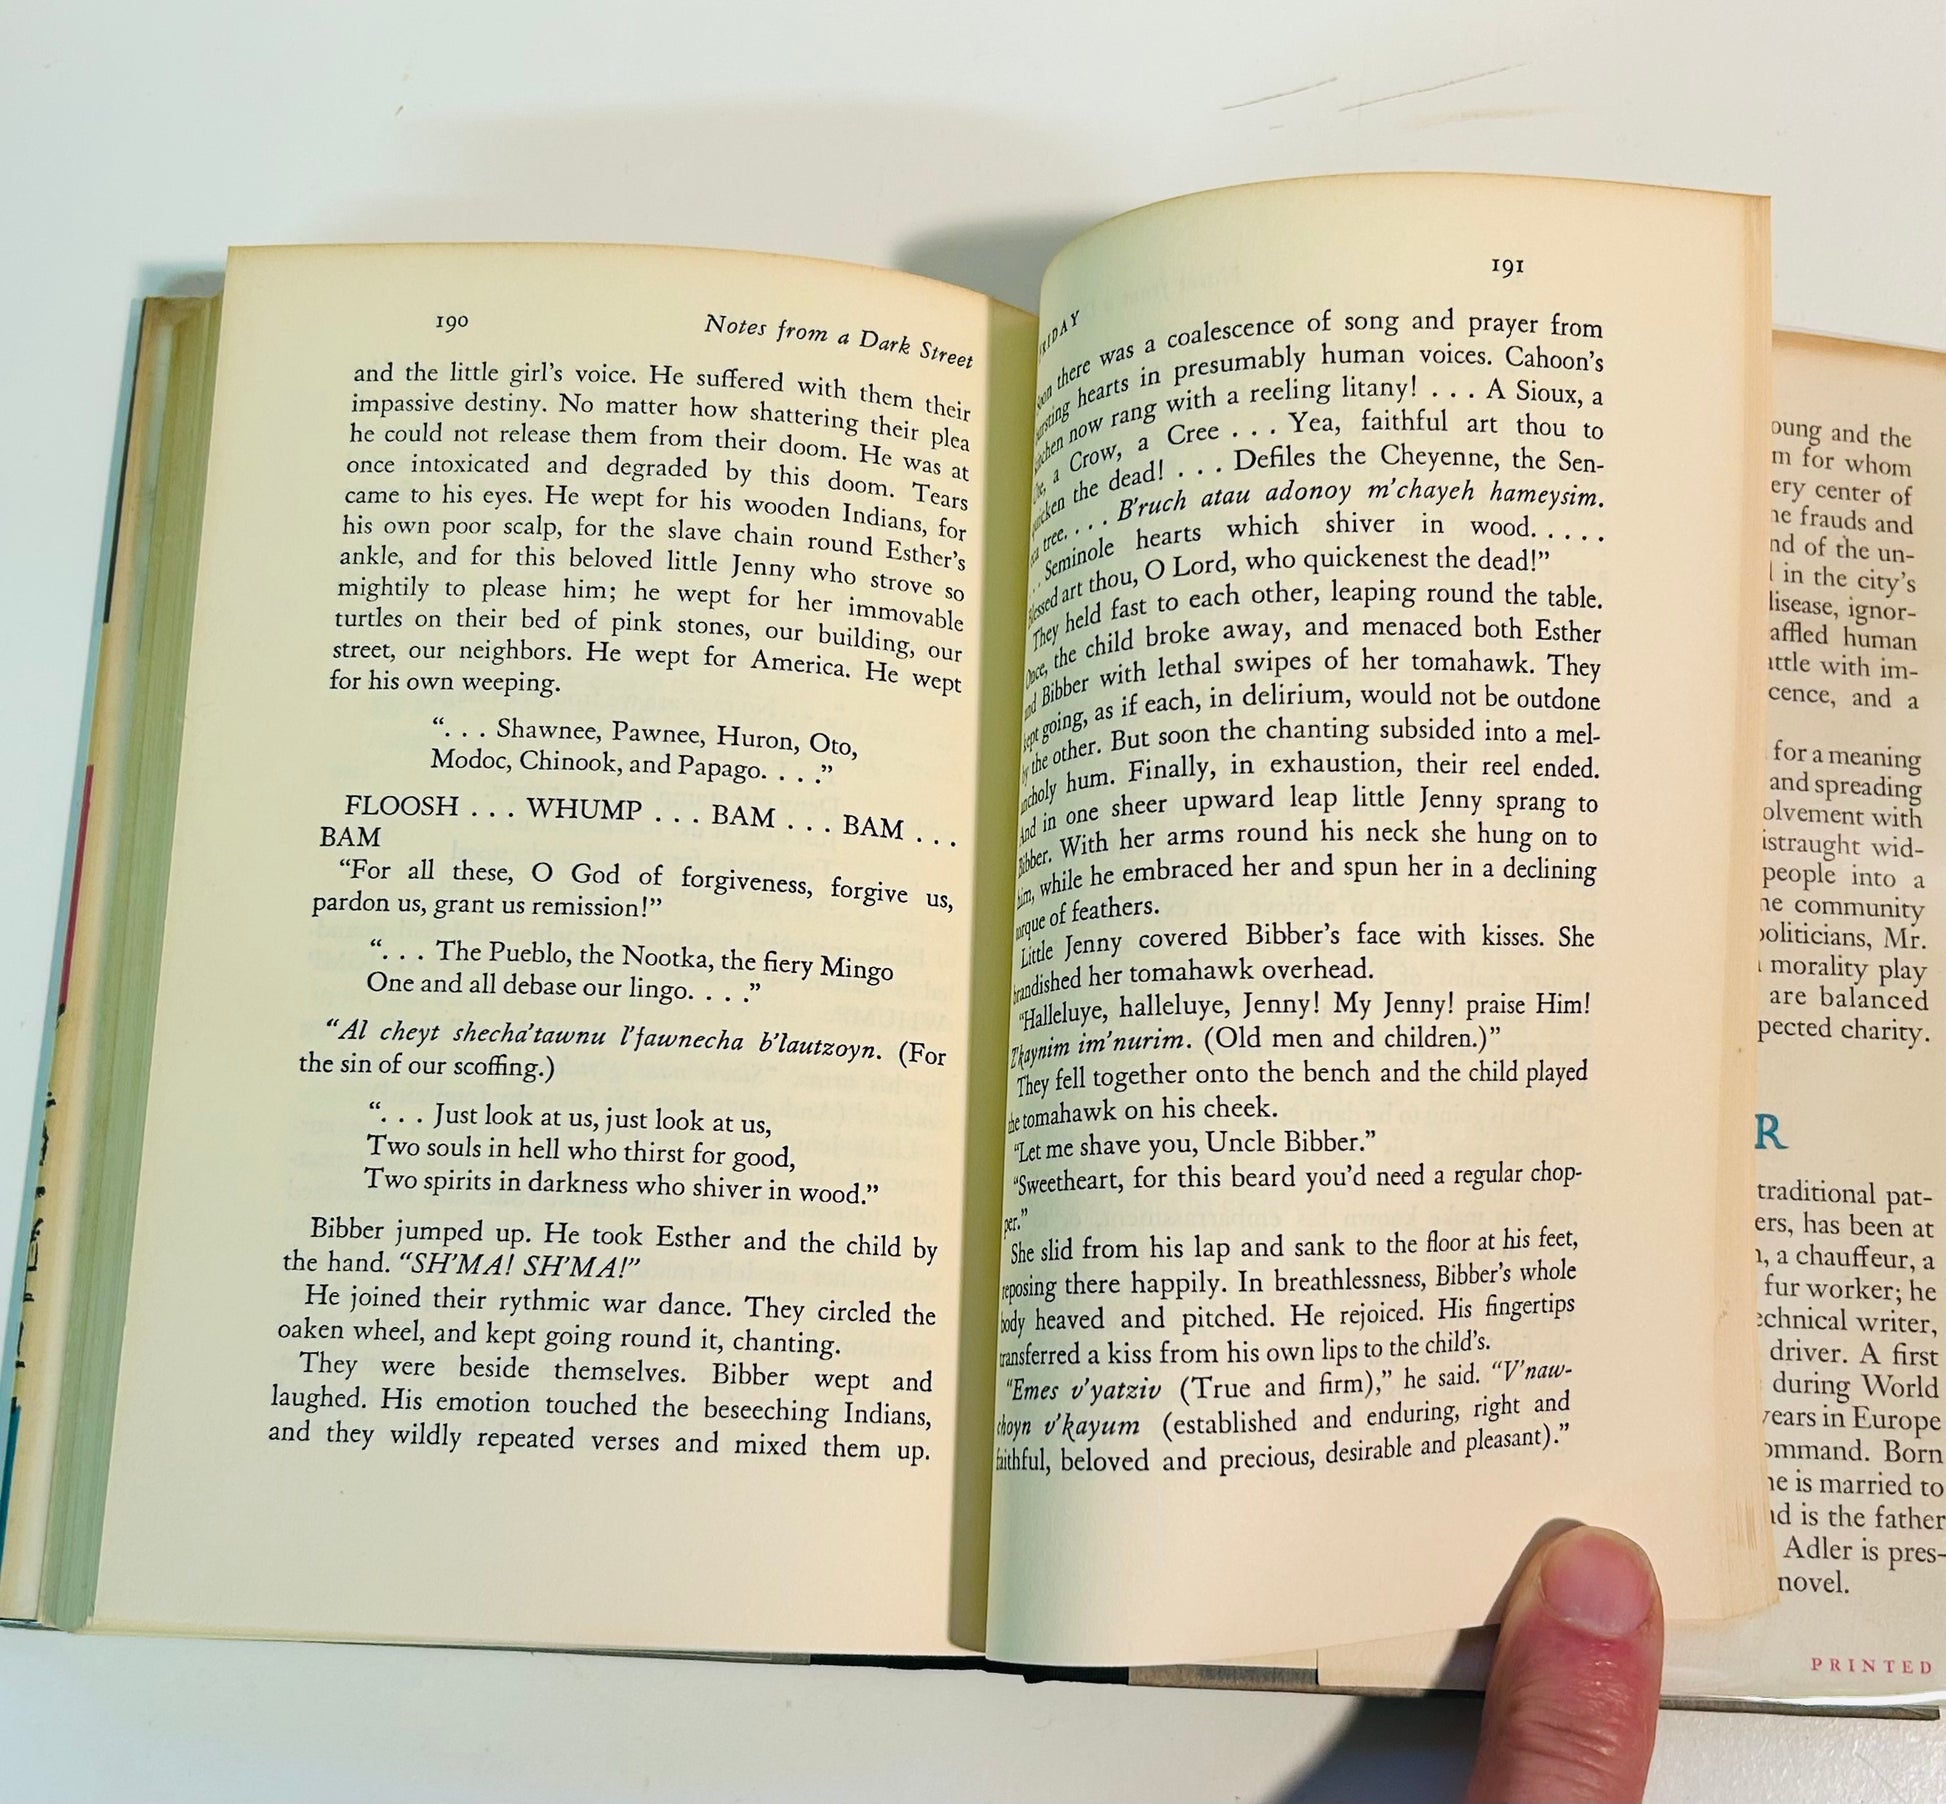 190
Notes from a Dark Street
and the little girl's voice. He suffered with them their
impassive destiny. No matter how shattering their plea
he could not release them from their doom. He was at
once intoxicated and degraded by this doom. Tears
came to his eyes. He wept for his wooden Indians, for
his own poor scalp, for the slave chain round Esther's
ankle, and for this beloved little Jenny who strove so
mightily to please him; he wept for her immovable
turtles on their bed of pink stones, our building, our
street, our neighbors. He wept for America. He wept
for his own weeping.
“. . . Shawnee, Pawnee, Huron, Oto,
Modoc, Chinook, and Papago. . . .”
FLOOSH . . . WHUMP . . . BAM . . . BAM . . .
BAM
“For all these, O God of forgiveness, forgive us,
pardon us, grant us remission!”
“. . . The Pueblo, the Nootka, the fiery Mingo
One and all debase our lingo. . . .”
“Al cheyt shecha'tawnu l'fawnecha b'lautzoyn. (For
the sin of our scoffing.)
“. . . Just look at us, just look at us,
Two souls in hell who thirst for good,
Two spirits in darkness who shiver in wood.”
Bibber jumped up. He took Esther and the child by
the hand. “SH'MA! SH'MA!”
He joined their rythmic war dance. They circled the
oaken wheel, and kept going round it, chanting.
They were beside themselves. Bibber wept and
laughed. His emotion touched the beseeching Indians,
and they wildly repeated verses and mixed them up.
191
there was a coalescence of song and prayer from
hearts in presumably human voices. Cahoon's
now rang with a reeling litany! . . . A Sioux, a
a Crow, a Cree . . . Yea, faithful art thou to
the dead! . . . Defiles the Cheyenne, the Sen-
tree. . . . B'ruch atau adonoy m'chayeh hameysim.
Seminole hearts which shiver in wood. . . . .
art thou, O Lord, who quickenest the dead!”
They held fast to each other, leaping round the table.
Once, the child broke away, and menaced both Esther
and Bibber with lethal swipes of her tomahawk. They
kept going, as if each, in delirium, would not be outdone
by the other. But soon the chanting subsided into a mel-
ancholy hum. Finally, in exhaustion, their reel ended.
And in one sheer upward leap little Jenny sprang to
Bibber. With her arms round his neck she hung on to
him, while he embraced her and spun her in a declining
torque of feathers.
Little Jenny covered Bibber's face with kisses. She
brandished her tomahawk overhead.
“Halleluye, halleluye, Jenny! My Jenny! praise Him!
Z'kaynim im'nurim. (Old men and children.)”
They fell together onto the bench and the child played
the tomahawk on his cheek.
“Let me shave you, Uncle Bibber.”
“Sweetheart, for this beard you'd need a regular chop-
per.”
She slid from his lap and sank to the floor at his feet,
reposing there happily. In breathlessness, Bibber's whole
body heaved and pitched. He rejoiced. His fingertips
transferred a kiss from his own lips to the child's.
“Emes v'yatziv (True and firm),” he said. “V'naw-
choyn v'kayum (established and enduring, right and
faithful, beloved and precious, desirable and pleasant).”
and the
m for whom
ery center of
frauds and
of the un-
in the city's
disease, ignor-
human
with im-
and a
for a meaning
and spreading
with
wid-
people into a
community
politicians, Mr.
morality play
are balanced
charity.
R
traditional pat-
has been at
a chauffeur, a
fur worker; he
writer,
driver. A first
during World
years in Europe
Born
he is married to
is the father
Adler is pres-
novel.
PRINTED